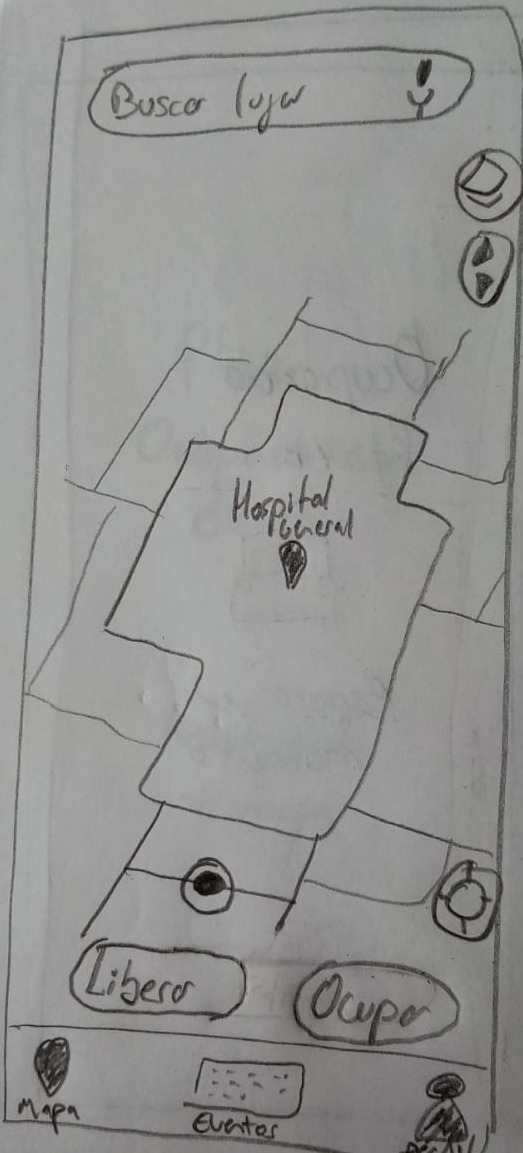 Buscar lugar
Hospital
General
Liberar
Ocupar
Mapa
Eventos
Perfil